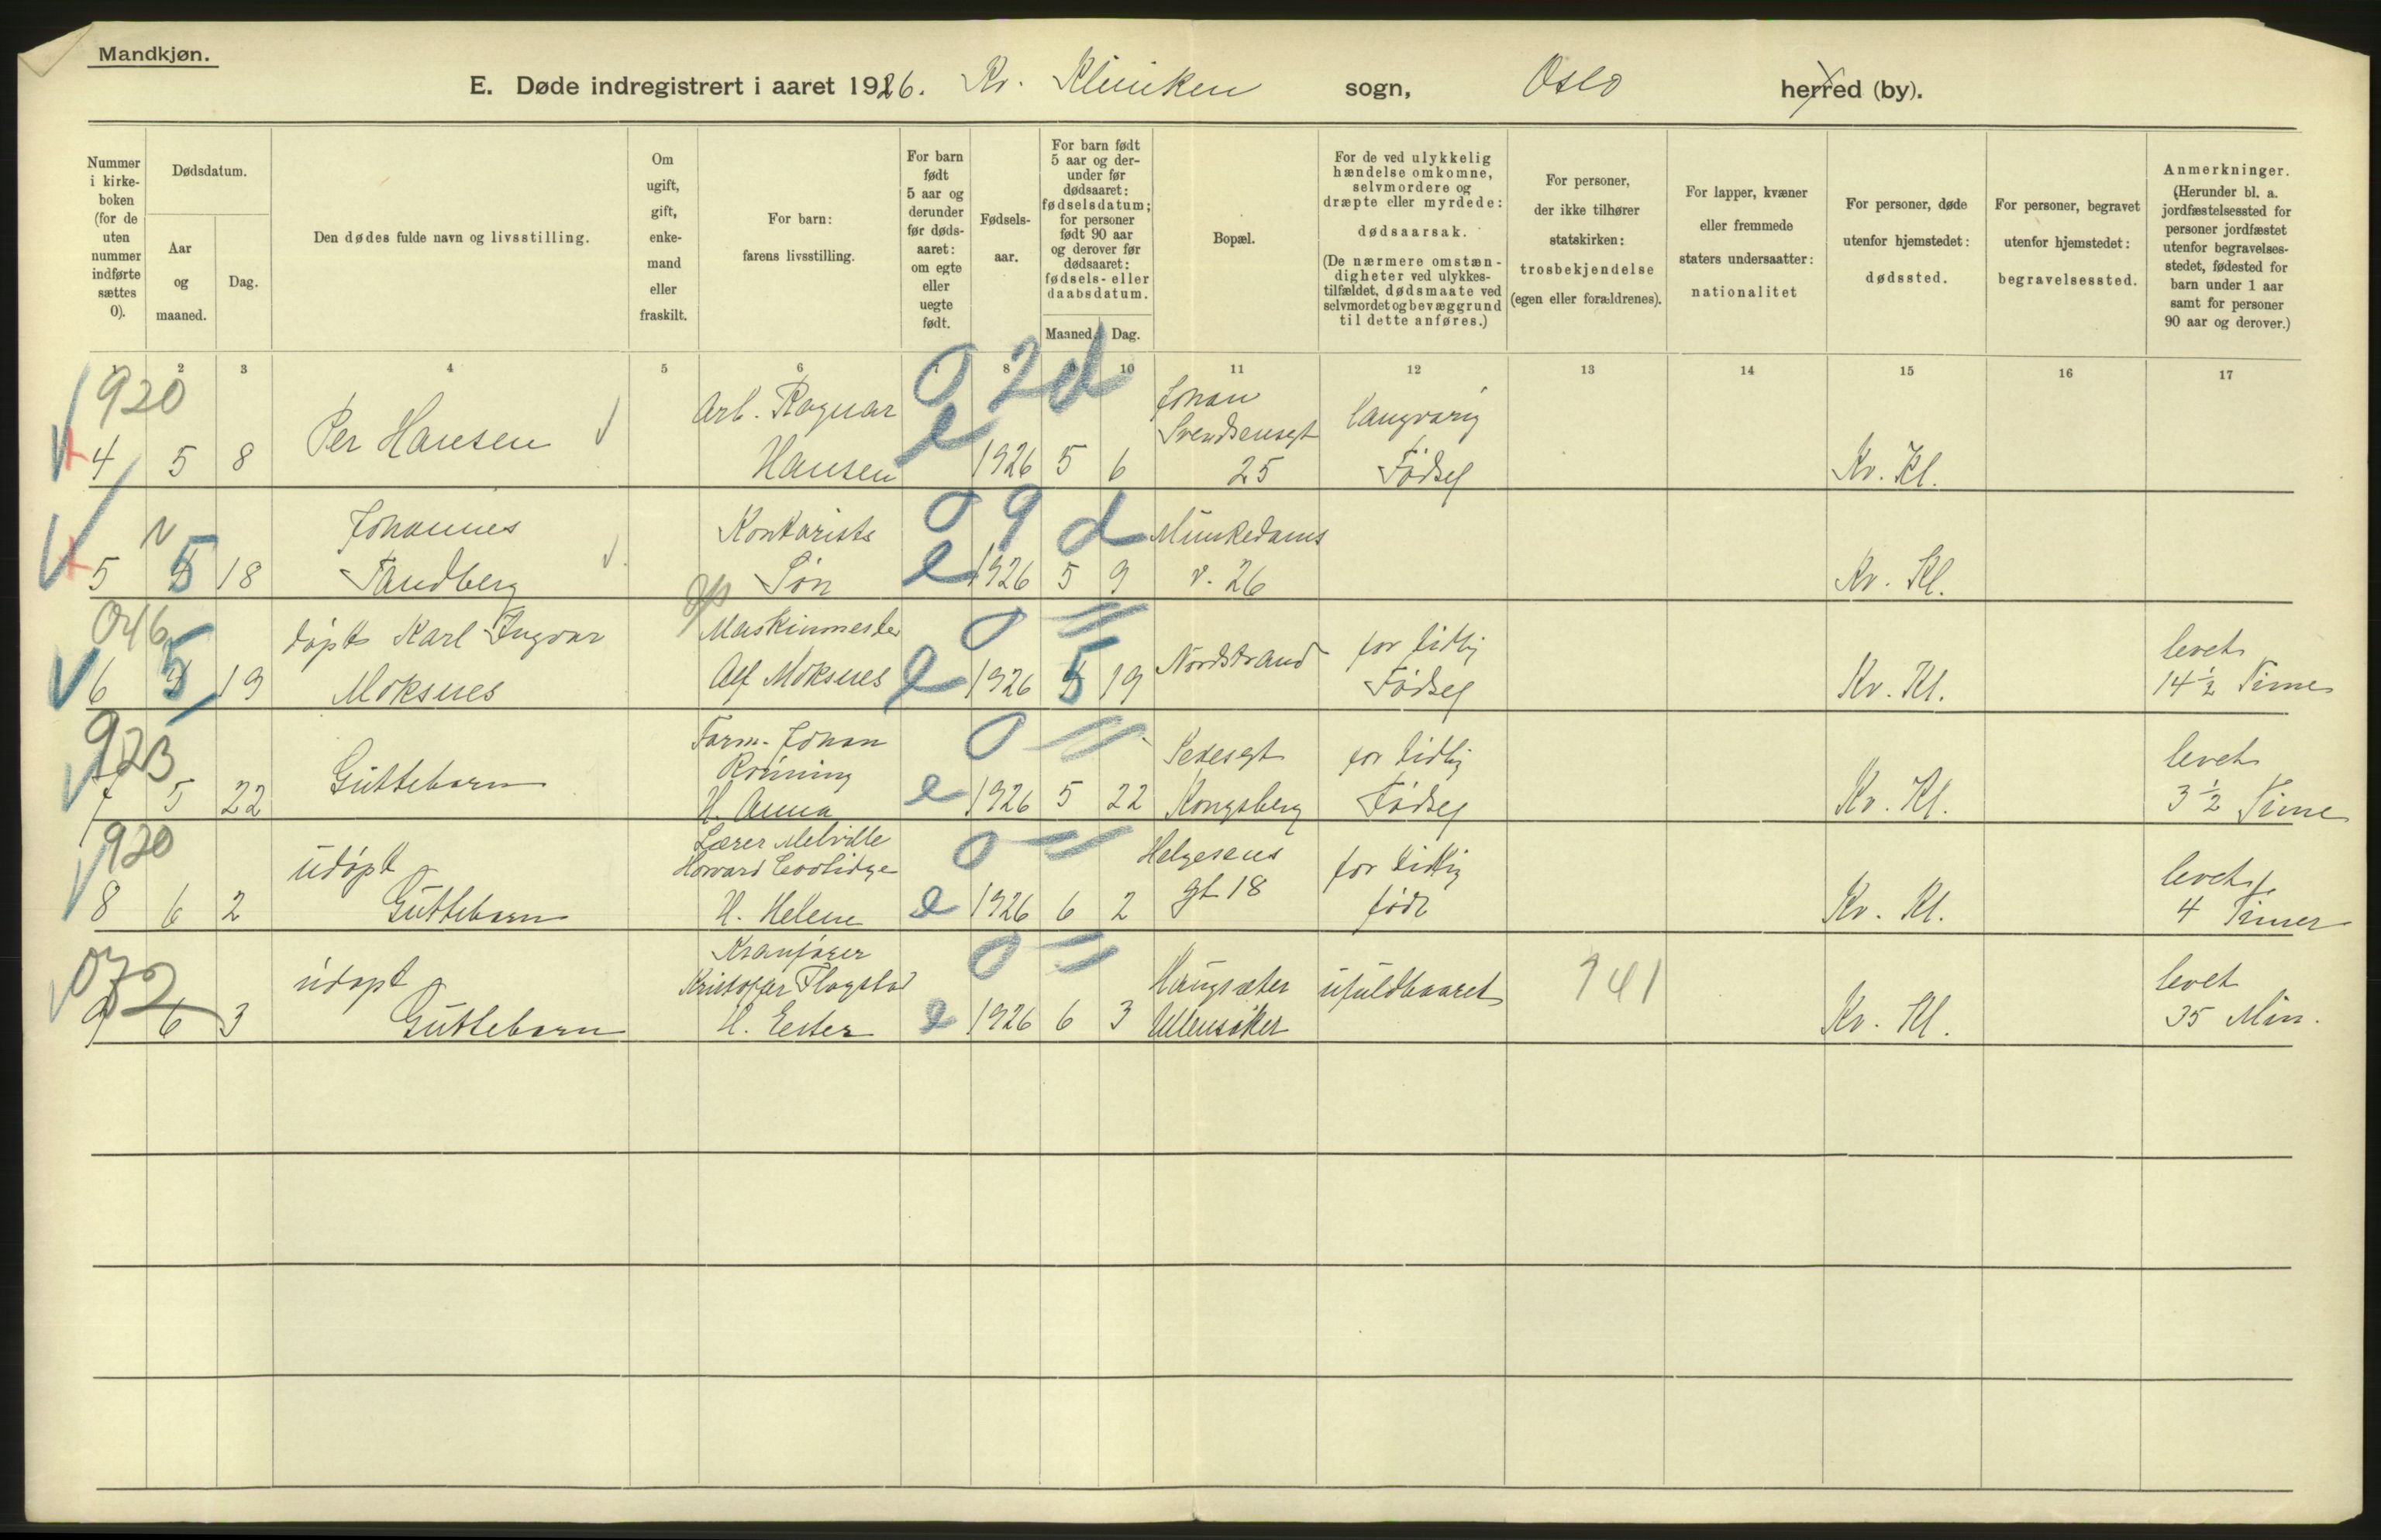 Mandkjøn.
E. Døde indregistrert i aaret 1926. Kv. Kliniken sogn, Oslo herred (by).
Nummer i kirkeboken (for de uten nummer indførte sættes 0).
Dødsdatum.
Aar og maaned.
Dag.
Den dødes fulde navn og livsstilling.
Om ugift, gift, enkemand eller fraskilt.
For barn: farens livsstilling.
For barn født 5 aar og derunder før dødsaaret: om egte eller uegte født.
Fødselsaar.
For barn født 5 aar og derunder før dødsaaret: fødselsdatum; for personer født 90 aar og derover før dødsaaret: fødsels- eller daabsdatum.
Maaned. Dag.
Bopæl.
For de ved ulykkelig hændelse omkomne, selvmordere og dræpte eller myrdede: dødsaarsak. (De nærmere omstændigheter ved ulykkestilfældet, dødsmaate ved selvmordet og bevæggrund til dette anføres.)
For personer, der ikke tilhører statskirken: trosbekjendelse (egen eller forældrenes).
For lapper, kvæner eller fremmede staters undersaatter: nationalitet
For personer, døde utenfor hjemstedet: dødssted.
For personer, begravet utenfor hjemstedet: begravelsessted.
Anmerkninger. (Herunder bl. a. jordfæstelsessted for personer jordfæstet utenfor begravelsesstedet, fødested for barn under 1 aar samt for personer 90 aar og derover.)
1 2 3 4 5 6 7 8 9 10 11 12 13 14 15 16 17
920 0 2 d
4 5 8 Per Hansen Arb. Ragnar Hansen e 1926 5 6 Johan Svendsensgt 25 langvarig Fødsel Kv. Kl.
N 0 9 d
5 5 18 Johannes Tandberg Kontorists Søn e 1926 5 9 Munkedams v. 26 Kv. Kl.
046 0 =
6 5 19 døpt Karl Ingvar Moksnes Maskinmester Alf Moksnes e 1926 5 19 Nordstrand for tidlig Fødsel Kv. Kl. levet 14 1/2 Time
923 0 =
7 5 22 Guttebarn Johan Rønning H. Anna e 1926 5 22 Kongsberg for tidlig Fødsel Kv. Kl. levet 3 1/2 Time
920 0 =
8 6 2 udøpt Guttebarn Lærer Melville Howard Coolidge H. Helene e 1926 6 2 Helgesens gt 18 for tidlig født Kv. Kl. levet 4 Timer
032 0 =
9 6 3 udøpt Guttebarn Kranfører Kristofer Flagstad H. Ester e 1926 6 3 Haugsæter Ullensaker ufuldbaaret 141 Kv. Kl. levet 35 Min.